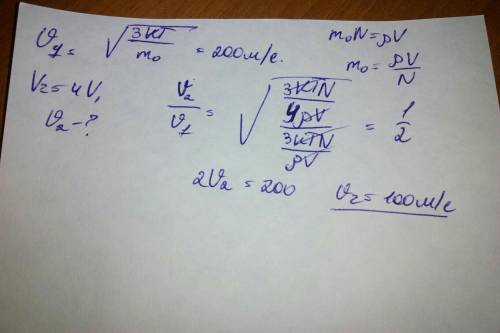 υ₁ = √(3kT/m₀) = 200м/с.
m₀N = ρV
m₀ = ρV/N
V₂ = 4V₁
υ₂ - ?
υ₂/υ₁ = √((3kTN/4ρV)/(3kTN/ρV)) = 1/2
2υ₂ = 200
υ₂ = 100м/с